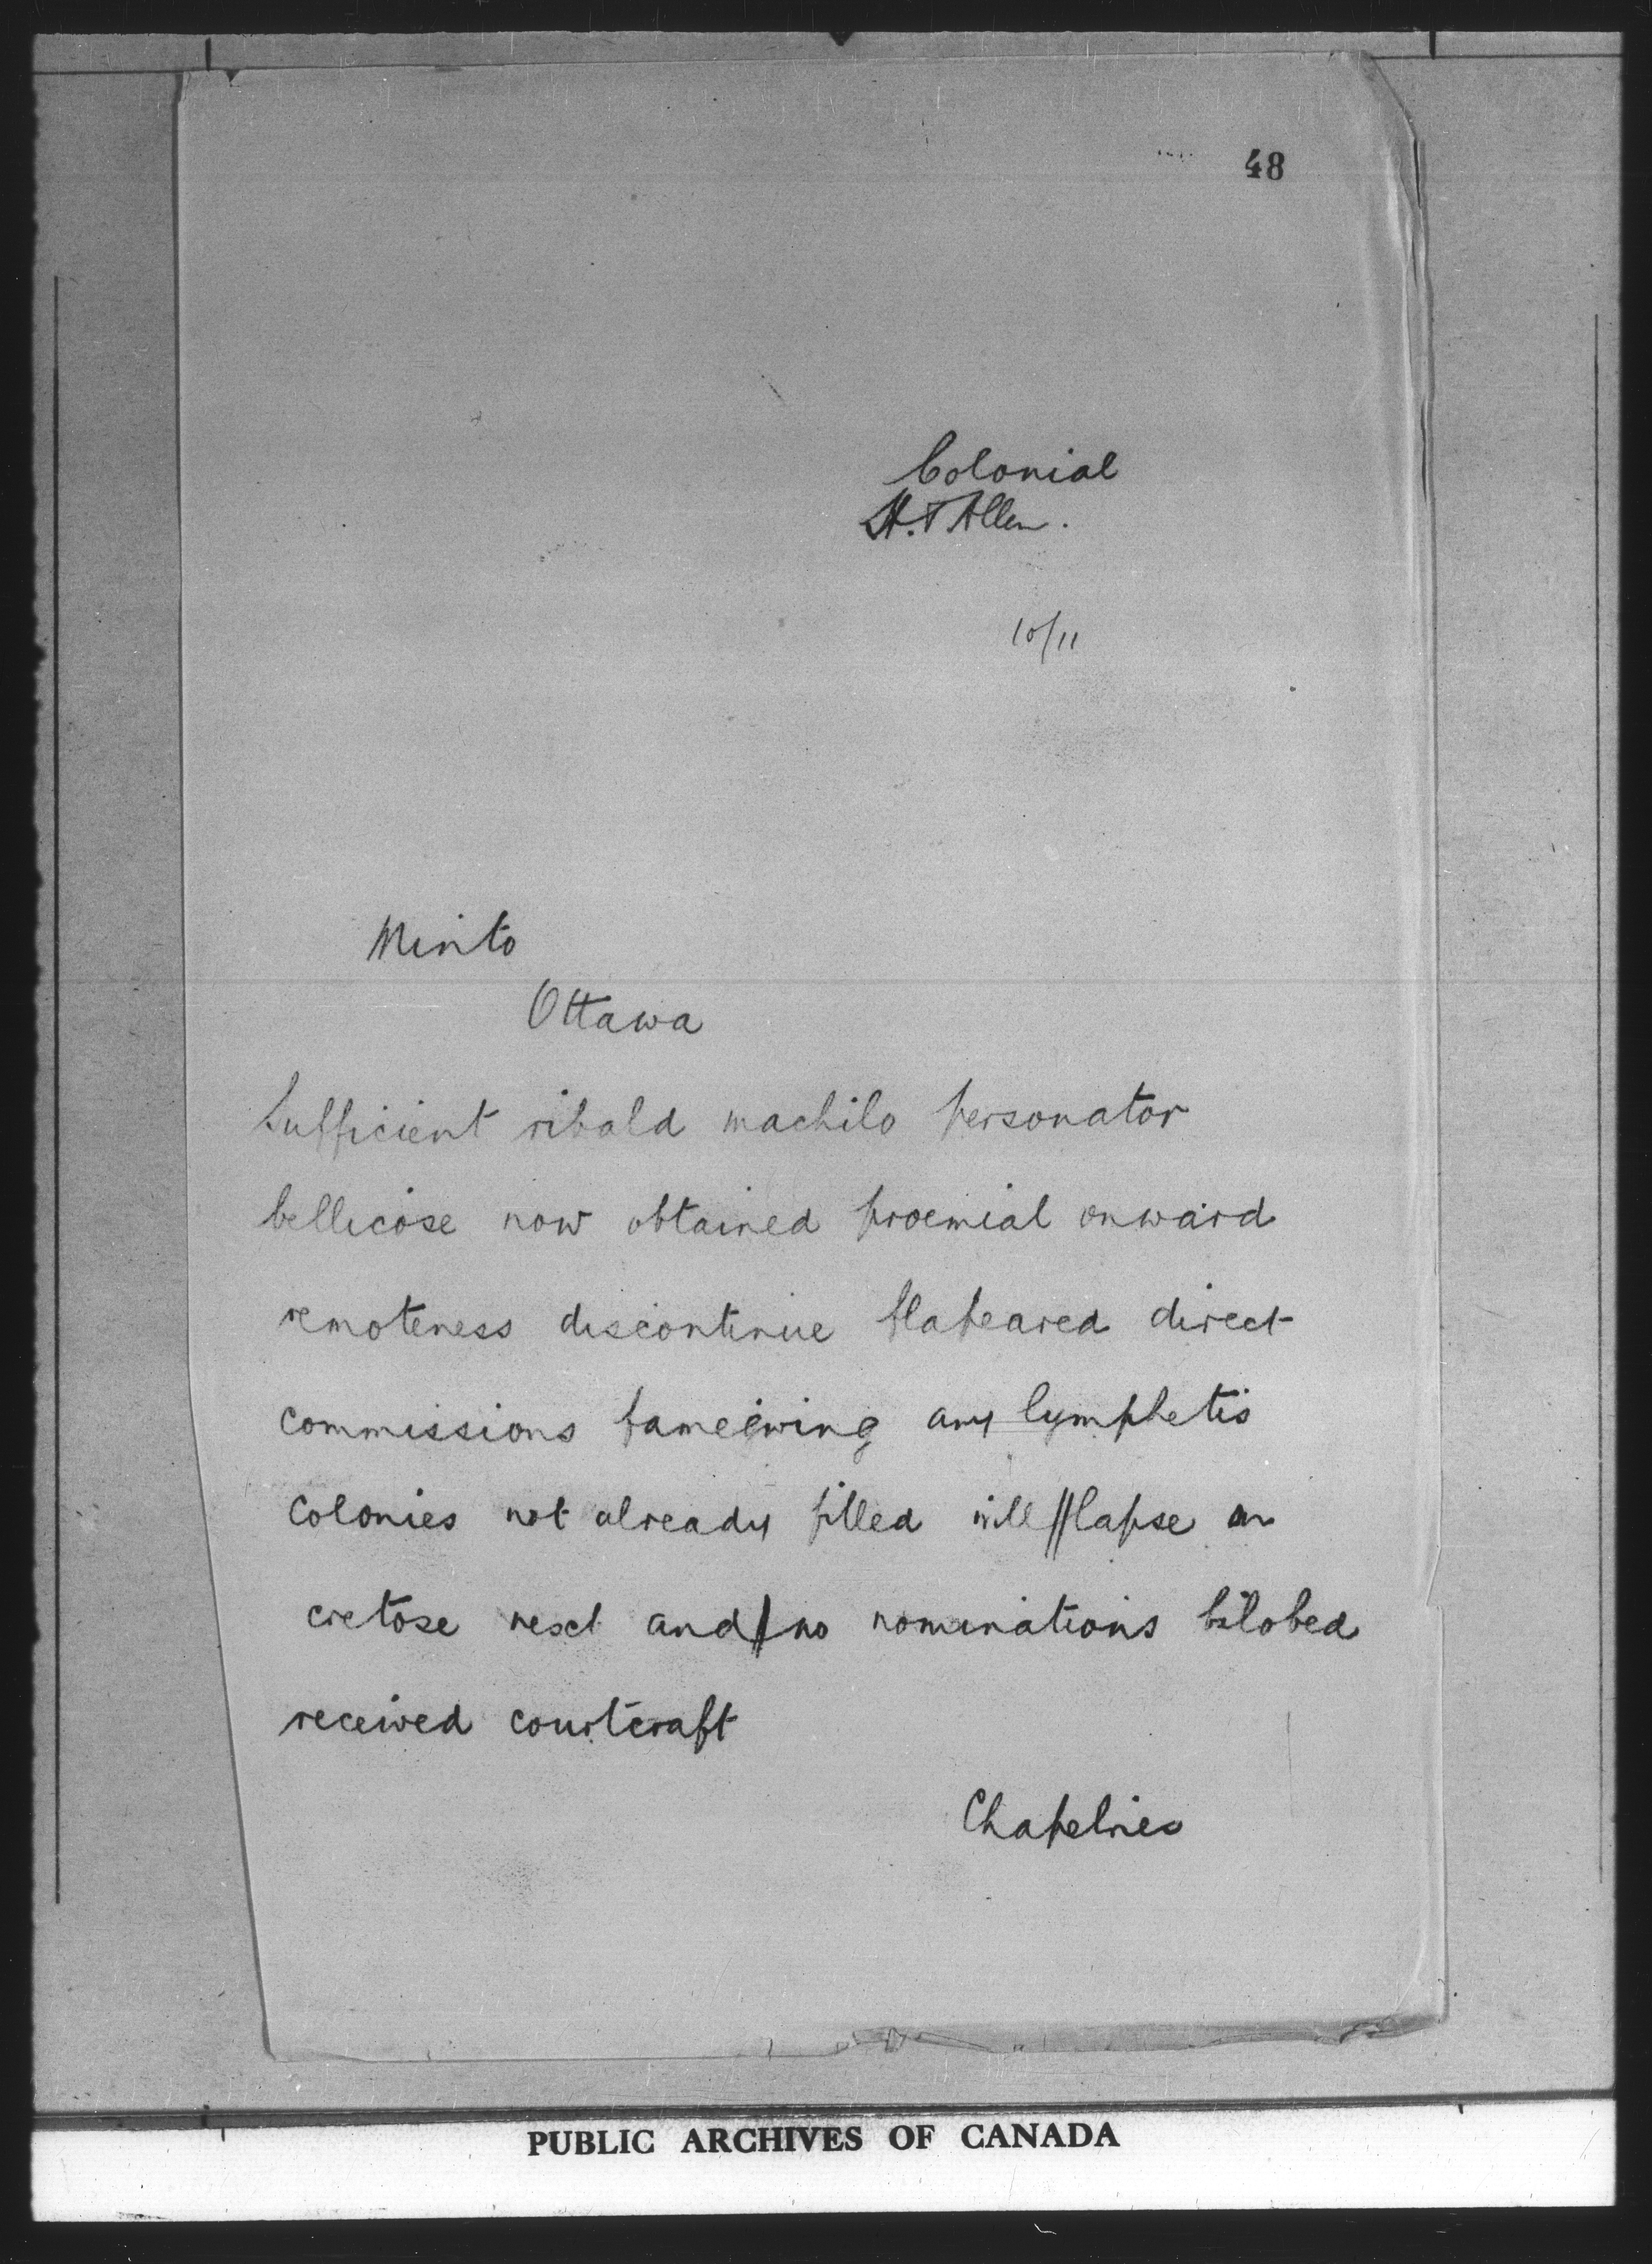 48
Colonial
H. F Allen.
10/11
Minto
Ottawa
Sufficient ribald machilo personator
bellicose now obtained proemial onward
remoteness discontinue flapeared direct
commissions any lymphetis
colonies not already filled will // lapse on
cretose next and / no nominations bilobed
received courtcraft
Chapelries
PUBLIC ARCHIVES OF CANADA